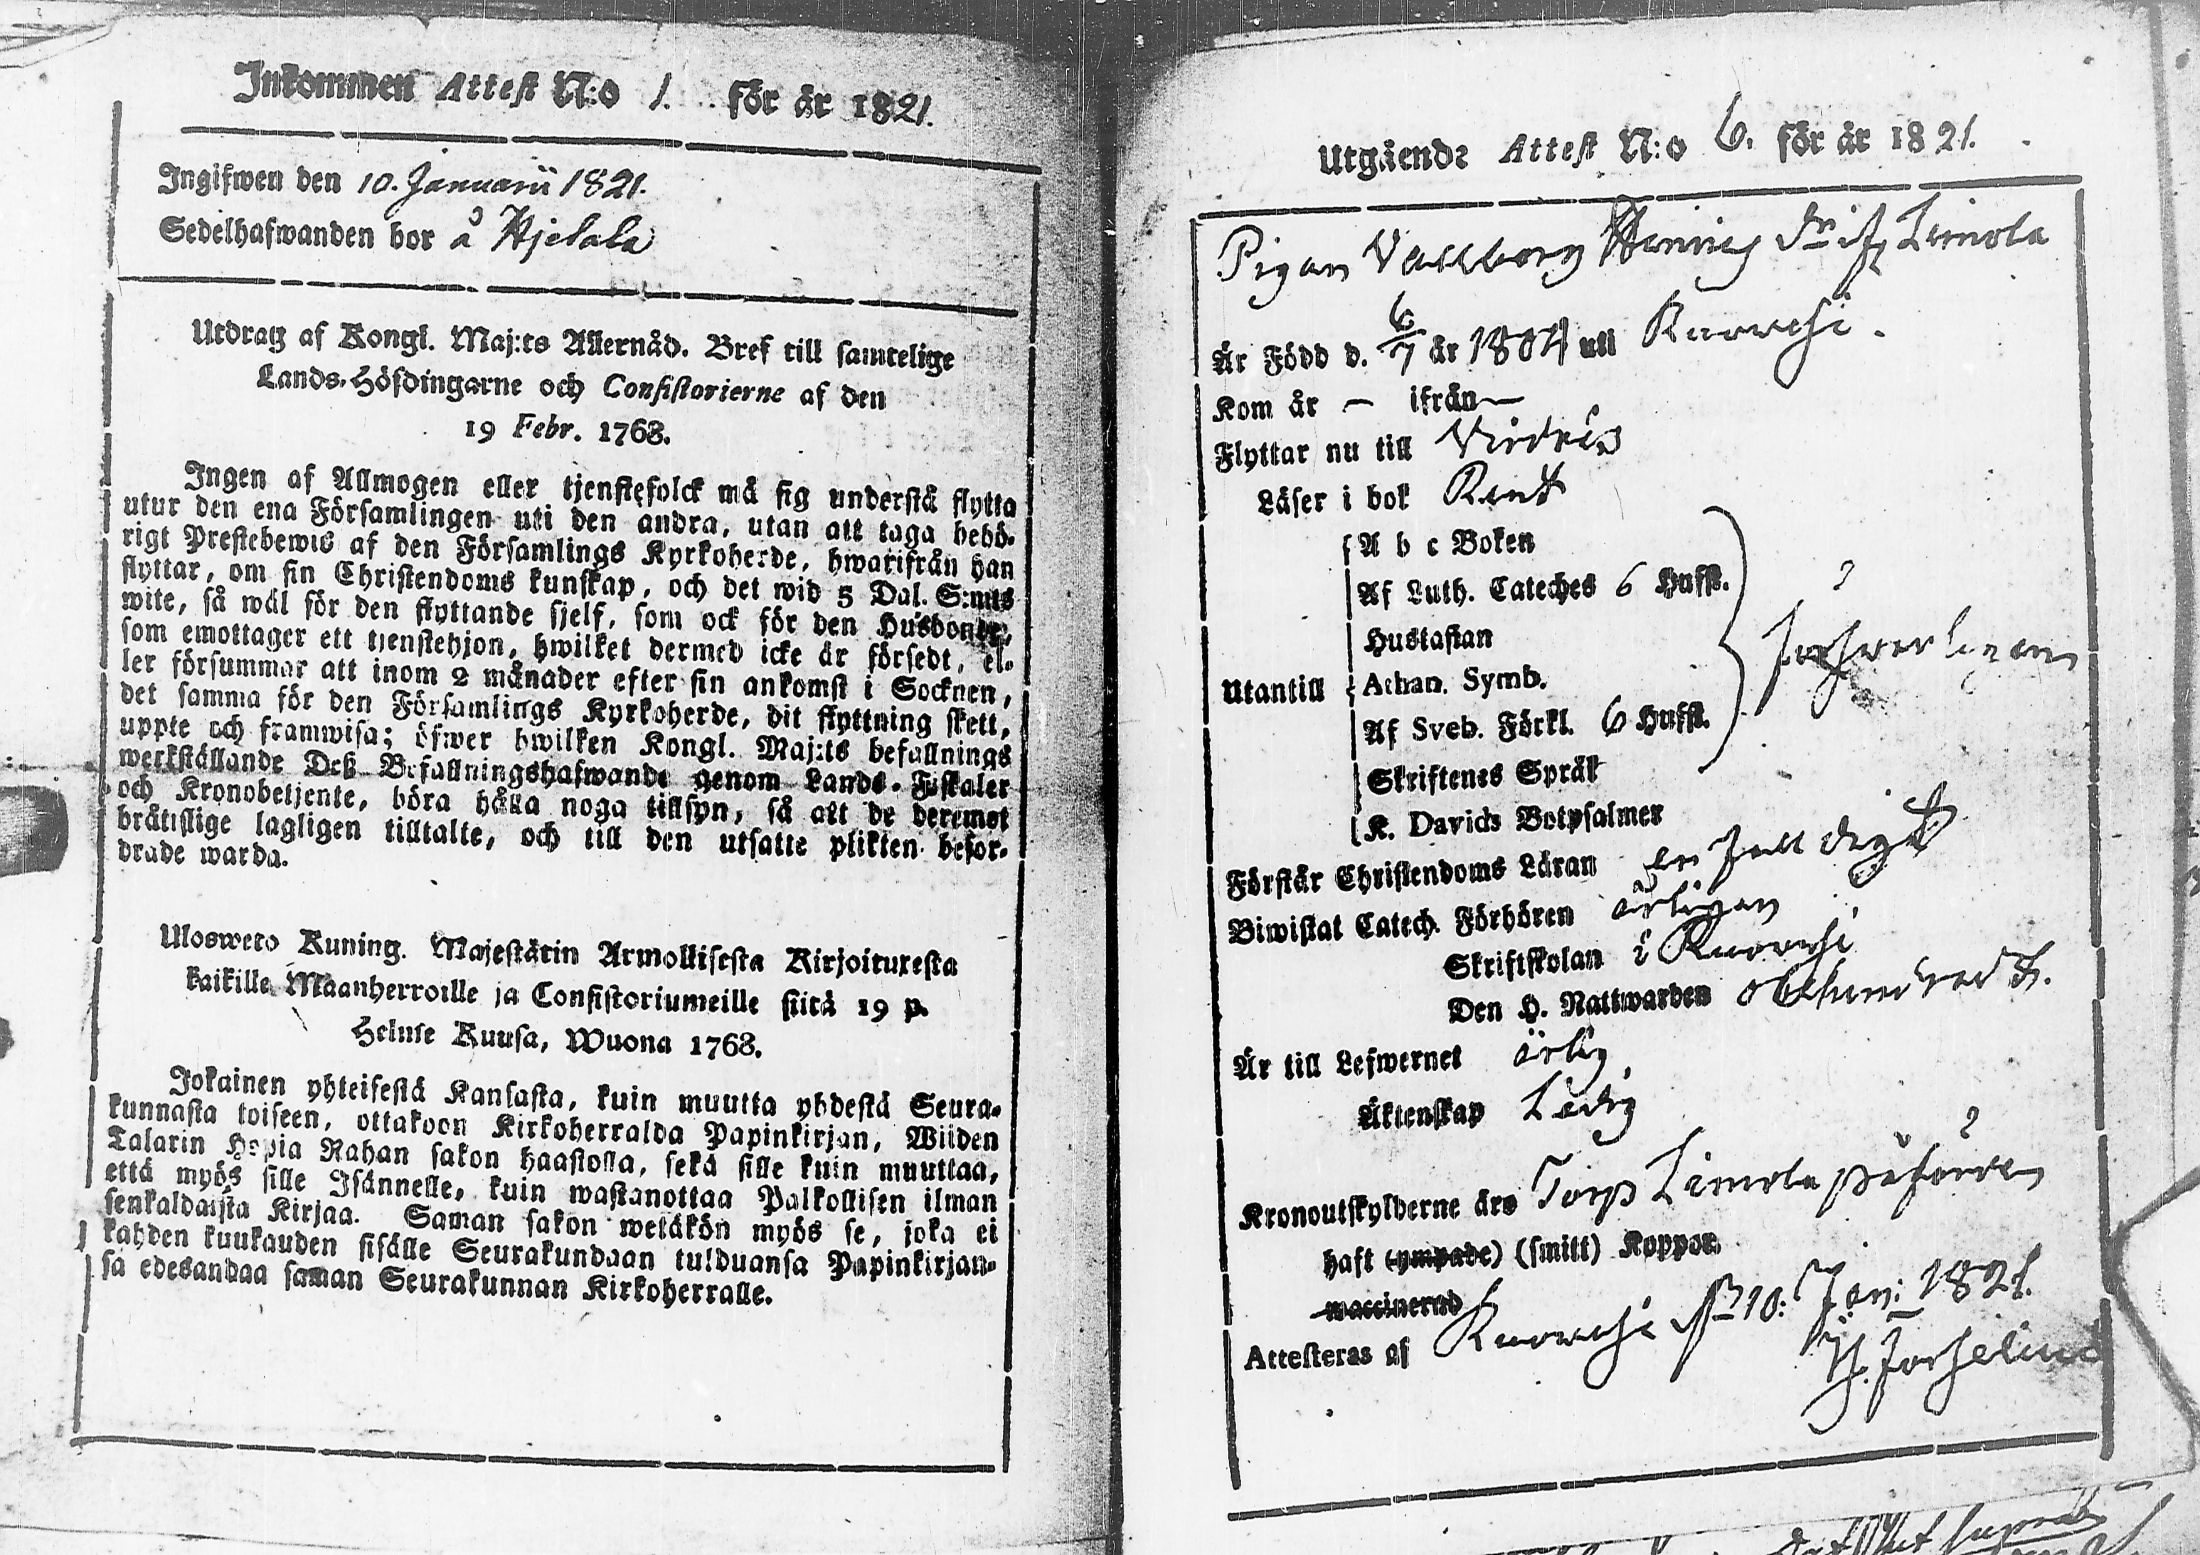 Inkommen Attest N:o 1. för år 1821.
Ingifwen den 10. Januarii 1821.
Sedelhafwanden bor å Hjelala
Utdrag af Kongl. Maj:ts Allernåd. Bref till samtelige
Lands-Höfdingarne och Consistorierne af den
19 Febr. 1768.
Ingen af Allmogen eller tjenstefolck må sig understå flytta
utur den ena Församlingen uti den andra, utan att taga behö-
rigt Prestebewis af den Församlings Kyrkoherde, hwarifrån han
flyttar, om sin Christendoms kunskap, och det wid 5 Dal. S:mts
wite, så wäl för den flyttande sjelf, som ock för den Husbonde,
som emottager ett tjenstehjon, hwilket dermed icke är försedt, el-
ler försummar att inom 2 månader efter sin ankomst i Socknen,
det samma för den Församlings Kyrkoherde, dit flyttning skett,
uppte och framwisa; öfwer hwilken Kongl. Maj:ts befallnings
werkställande Deß Befallningshafwande genom Lands-Fiskaler
och Kronobetjente, böra hålla noga tillsyn, så att de deremot
brätislige lagligen tilltalte, och till den utsatte plikten befor-
drade warda.
Ulosweto Kuning. Majestätin Armollisesta Kirjoituxesta
kaikille Maanherroille ja Consistoriumeille siitä 19 p.
Helmie Kuusa, Wuona 1768.
Jokainen yhteisestä Kansasta, kuin muutta yhdestä Seura-
kunnasta toiseen, ottakoon Kirkoherralda Papinkirjan, Wiiden
Talarin Hopia Rahan sakon haastolla, sekä sille kuin muuttaa,
että myös sille Isännelle, kuin wastanottaa Palkollisen ilman
senkaldaista Kirjaa. Saman sakon wetäkön myös se, joka ei
kahden kuukauden sisälle Seurakundaan tulduansa Papinkirjan-
sa edesandaa saman Seurakunnan Kirkoherralle.
Utgående Attest N:o 6. för år 1821.
Pigan Vallborg Limola
Är Född d. 6/7 år 1804 uti Ruowesi.
Kom år — ifrån —
Flyttar nu till Virdois
Läser i bok Rent
A b c Boken
Af Luth. Cateches 6 Hufst.
Hustaflan
Utantill Athan. Symb.
Af Sveb. Förkl. 6 Hufst.
Skriftenes Språk
K. Davids Botpsalmer
Förstår Christendoms Läran enfalldigt
Biwistat Catech. Förhören årligen
Skriftskolan i Ruowesi
Den H. Nattwarden obehindradt.
Är till Lefwernet ärlig
Äktenskap Ledig
Kronoutskylderne äro Torp Limola påförde
haft (ympade) (smitt) Koppor
waccinerad
Attesteras af Ruowesi d. 10: Jan: 1821.